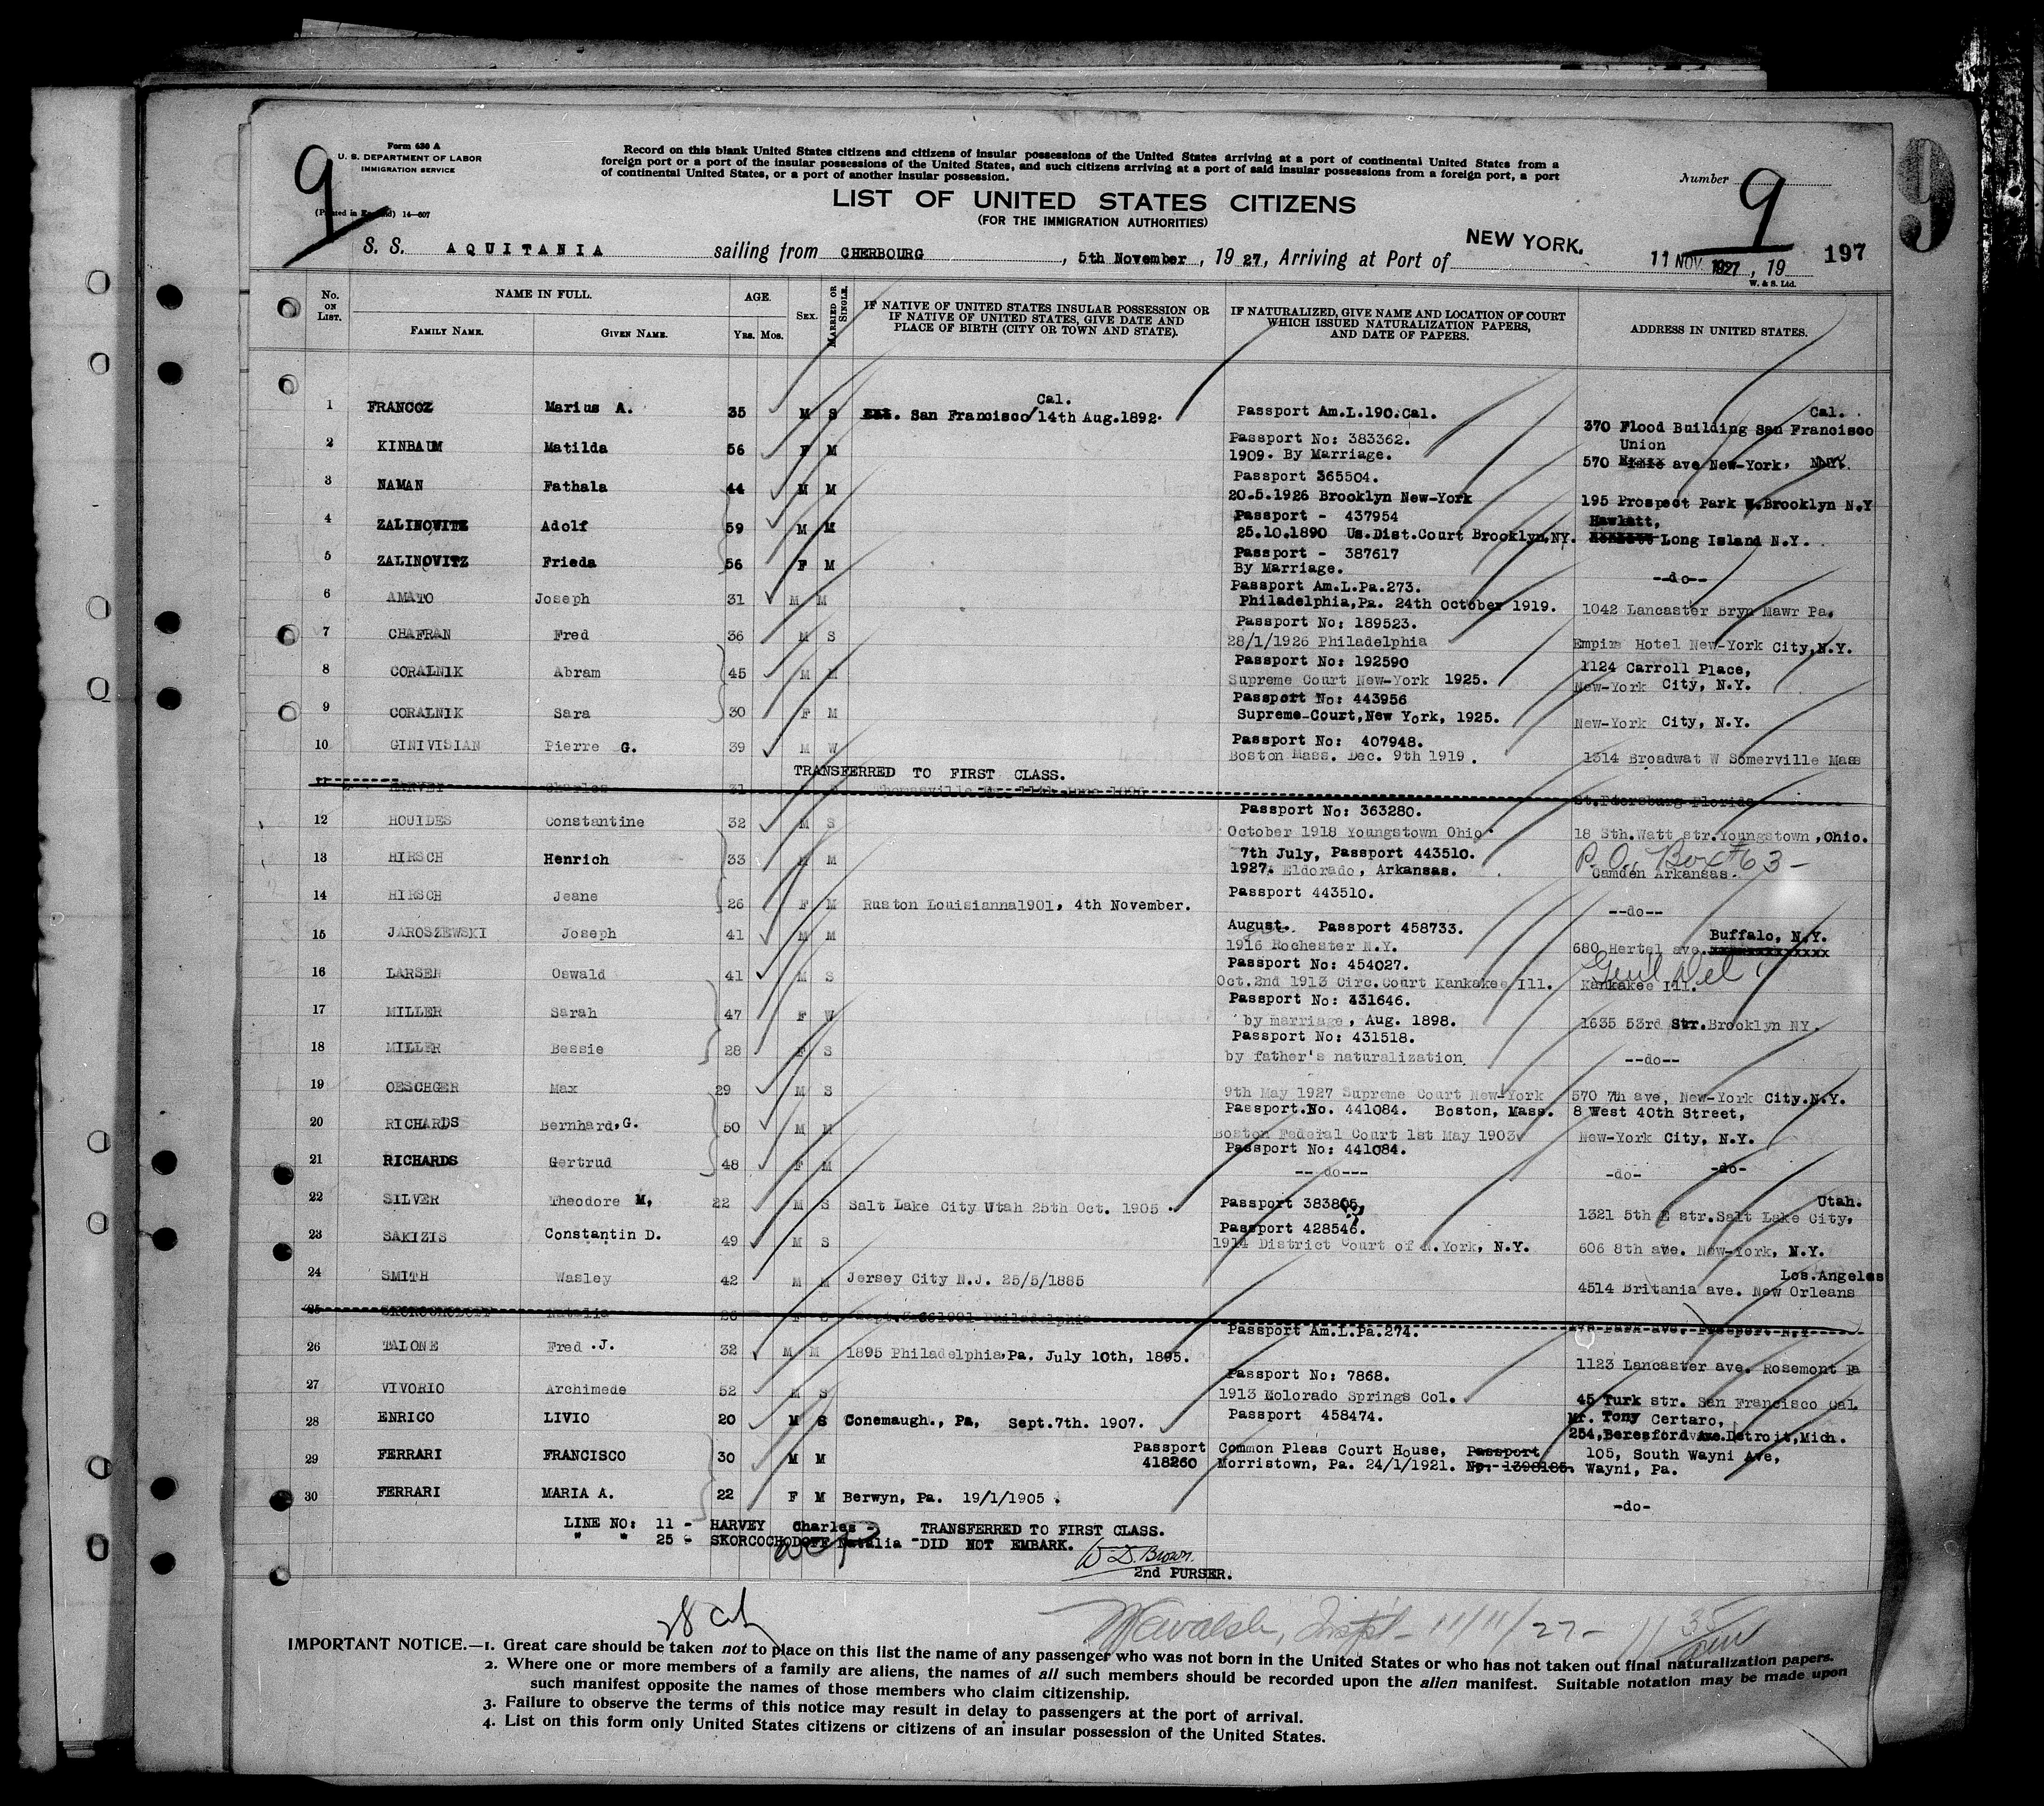 9
Form 630 A
U. S. DEPARTMENT OF LABOR
IMMIGRATION SERVICE
(Printed in England) 14—607
Record on this blank United States citizens and citizens of insular possessions of the United States arriving at a port of continental United States from a
foreign port or a port of the insular possessions of the United States, and such citizens arriving at a port of said insular possessions from a foreign port, a port
of continental United States, or a port of another insular possession.
LIST OF UNITED STATES CITIZENS
(FOR THE IMMIGRATION AUTHORITIES)
Number 9
9
S. S. AQUITANIA sailing from CHERBOURG, 5th November, 1927, Arriving at Port of NEW YORK. 11 NOV. 1927, 19 197
W. & S. Ltd.
No. ON LIST. NAME IN FULL. FAMILY NAME. GIVEN NAME. AGE. YRS. MOS. SEX. MARRIED OR SINGLE.
IF NATIVE OF UNITED STATES INSULAR POSSESSION OR
IF NATIVE OF UNITED STATES, GIVE DATE AND
PLACE OF BIRTH (CITY OR TOWN AND STATE).
IF NATURALIZED, GIVE NAME AND LOCATION OF COURT
WHICH ISSUED NATURALIZATION PAPERS,
AND DATE OF PAPERS.
ADDRESS IN UNITED STATES.
1 FRANCOZ Marius A. 35 M S San Francisco/14th Aug.1892. Cal. Passport Am.L.190.Cal. 370 Flood Building San Francisco Cal.
2 KINBAUM Matilda 56 F M Passport No: 383362. 1909. By Marriage. 570 Union ave New-York, N.Y.
3 NAMAN Fathala 44 M M Passport 365504. 20.5.1926 Brooklyn New-York 195 Prospect Park W.Brooklyn N.Y
4 ZALINOVITZ Adolf 59 M M Passport - 437954 25.10.1890 Us.Dist.Court Brooklyn,NY. Hawlatt, Long Island N.Y.
5 ZALINOVITZ Frieda 56 F M Passport - 387617 By Marriage. --do--
6 AMATO Joseph 31 M M Passport Am.L.Pa.273. Philadelphia,Pa. 24th October 1919. 1042 Lancaster Bryn Mawr Pa.
7 CHAFRAN Fred 36 M S Passport No: 189523. 28/1/1926 Philadelphia Empire Hotel New-York City,N.Y.
8 CORALNIK Abram 45 M M Passport No: 192590 Supreme Court New-York 1925. 1124 Carroll Place, New-York City, N.Y.
9 CORALNIK Sara 30 F M Passport No: 443956 Supreme-Court,New York, 1925. New-York City, N.Y.
10 GINIVISIAN Pierre G. 39 M W Passport No: 407948. Boston Mass. Dec. 9th 1919. 1314 Broadwat W Somerville Mass
TRANSFERRED TO FIRST CLASS.
11 HARVEY Charles 31 St.Petersburg Florida
12 HOUIDES Constantine 32 M S Passport No: 363280. October 1918 Youngstown Ohio. 18 Sth.Watt str.Youngstown,Ohio.
13 HIRSCH Henrich 33 M M 7th July, Passport 443510. 1927. Eldorado, Arkansas. P.O. Box #63 - Camden Arkansas.
14 HIRSCH Jeane 26 F M Ruston Louisianna1901, 4th November. Passport 443510. --do--
15 JAROSZEWSKI Joseph 41 M M August. Passport 458733. 1916 Rochester N.Y. 680 Hertel ave. Buffalo, N.Y.
16 LARSEN Oswald 41 M S Passport No: 454027. Oct.2nd 1913 Circ.Court Kankakee Ill. Gen'l Del Kankakee Ill.
17 MILLER Sarah 47 F W Passport No: 431646. by marriage, Aug. 1898. 1635 53rd Str.Brooklyn NY.
18 MILLER Bessie 28 F S Passport No: 431518. by father's naturalization --do--
19 OESCHGER Max 29 M S 9th May 1927 Supreme Court New-York 570 7th ave, New-York City.N.Y.
20 RICHARDS Bernhard,G. 50 M M Passport.No. 441084. Boston, Mass. Boston Federal Court 1st May 1903. 8 West 40th Street, New-York City, N.Y.
21 RICHARDS Gertrud 48 F M Passport No: 441084. -- do--- -do- -do-
22 SILVER Theodore M, 22 M S Salt Lake City Utah 25th Oct. 1905. Passport 383805, 1321 5th E str.Salt Lake City, Utah.
23 SAKIZIS Constantin D. 49 M S Passport 428546. 1914 District Court of N.York, N.Y. 606 8th ave. New-York, N.Y.
24 SMITH Wasley 42 M M Jersey City N.J. 25/5/1885 4514 Britania ave. New Orleans Los.Angeles
25 SKORCOCHODOFF Natalia 26 F S
26 TALONE Fred .J. 32 M M 1895 Philadelphia,Pa. July 10th, 1895. Passport Am.L.Pa.274. 1123 Lancaster ave. Rosemont Pa
27 VIVORIO Archimede 52 M S Passport No: 7868. 1913 Molorado Springs Col. 45 Turk str. San Francisco Cal
28 ENRICO LIVIO 20 M S Conemaugh., Pa, Sept.7th. 1907. Passport 458474. Mr. Tony Certaro, 254,Beresford Ave.Detroit,Mich.
29 FERRARI FRANCISCO 30 M M Passport 418260 Common Pleas Court House, Passport Morristown, Pa. 24/1/1921. No: 1398185. 105, South Wayni Ave, Wayni, Pa.
30 FERRARI MARIA A. 22 F M Berwyn, Pa. 19/1/1905. -do-
LINE NO: 11 - HARVEY Charles - TRANSFERRED TO FIRST CLASS.
" " 25 - SKORCOCHODOFF Natalia - DID NOT EMBARK.
W. D. Brown.
2nd PURSER.
28 Cit
11/11/27-
IMPORTANT NOTICE.—1. Great care should be taken not to place on this list the name of any passenger who was not born in the United States or who has not taken out final naturalization papers.
2. Where one or more members of a family are aliens, the names of all such members should be recorded upon the alien manifest. Suitable notation may be made upon
such manifest opposite the names of those members who claim citizenship.
3. Failure to observe the terms of this notice may result in delay to passengers at the port of arrival.
4. List on this form only United States citizens or citizens of an insular possession of the United States.